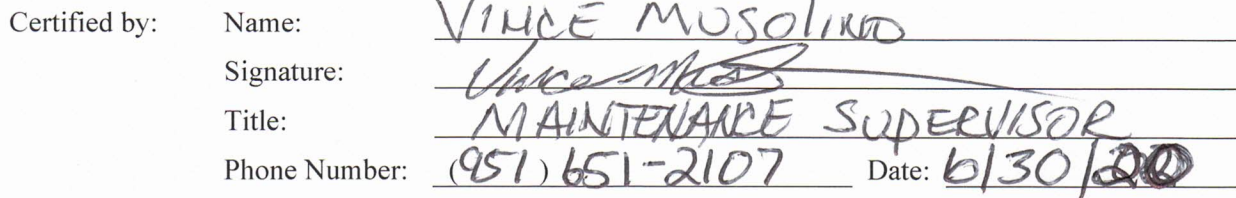 Certified by: Name: VINCE MUSOLINO
Signature: Vince Mus
Title: MAINTENANCE SUPERVISOR
Phone Number: (951) 651-2107 Date: 6/30/20